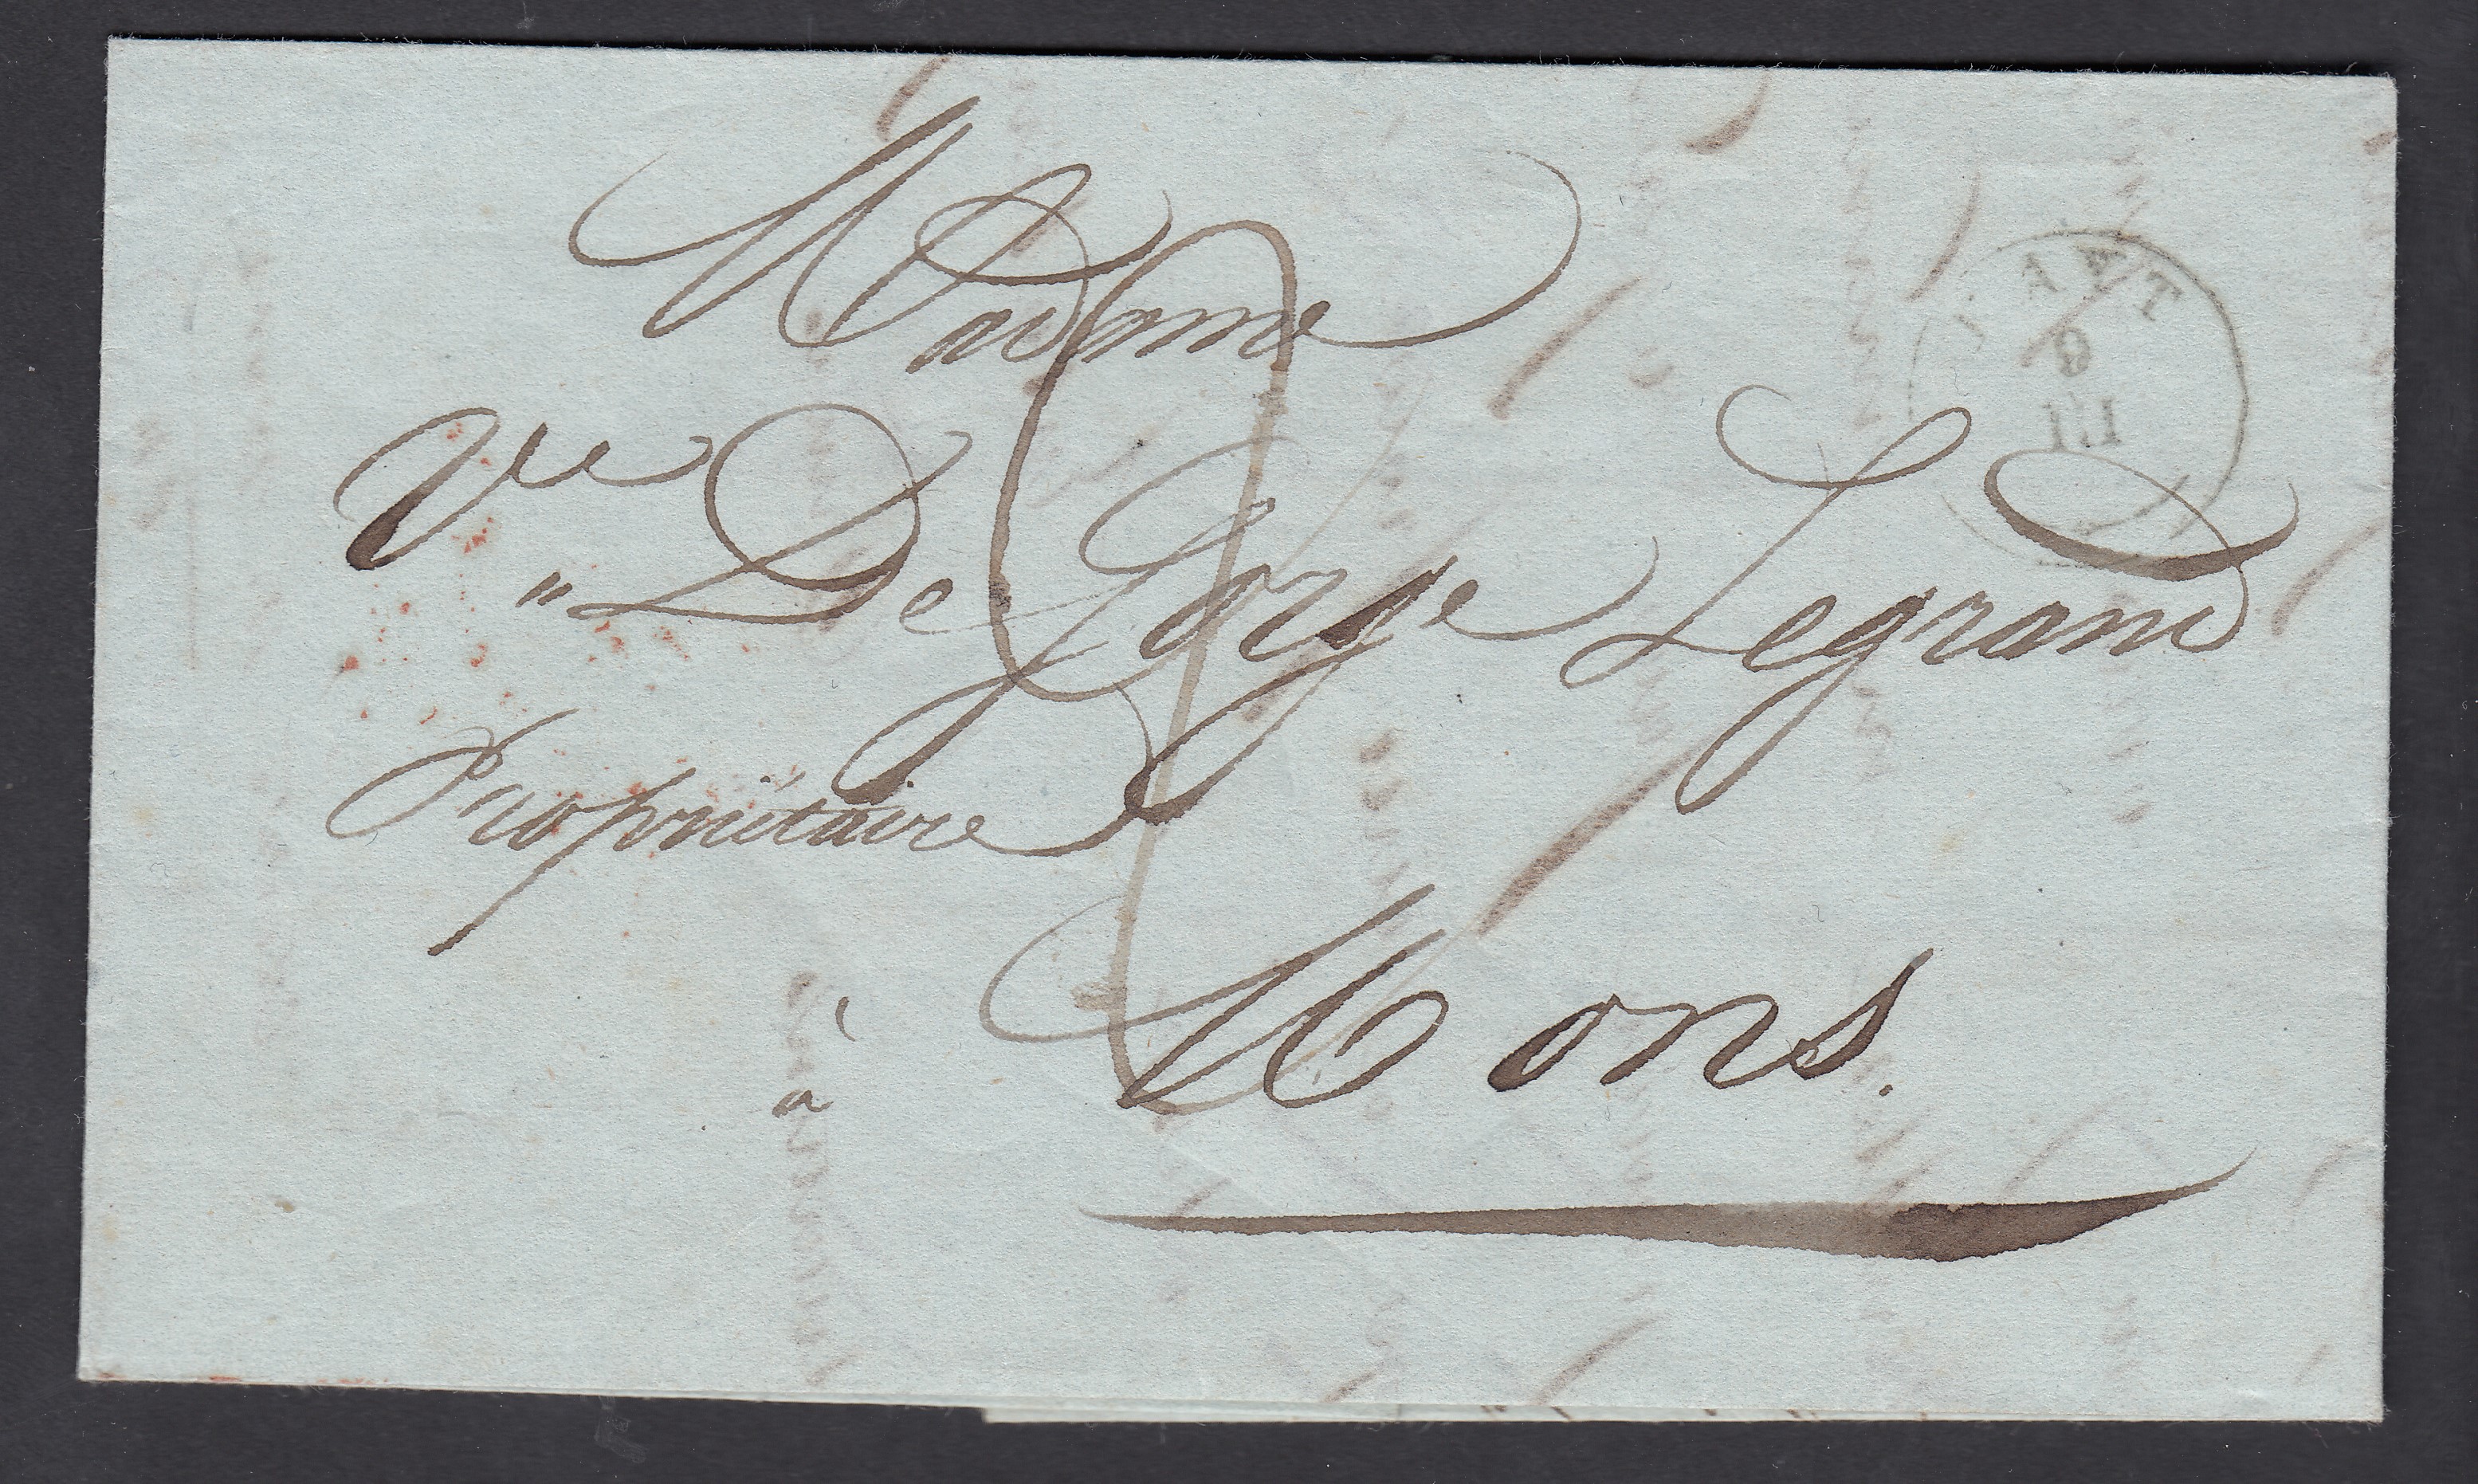 Madame
Vve De Gorge Legrand
Propriétaire
à Mons.
9